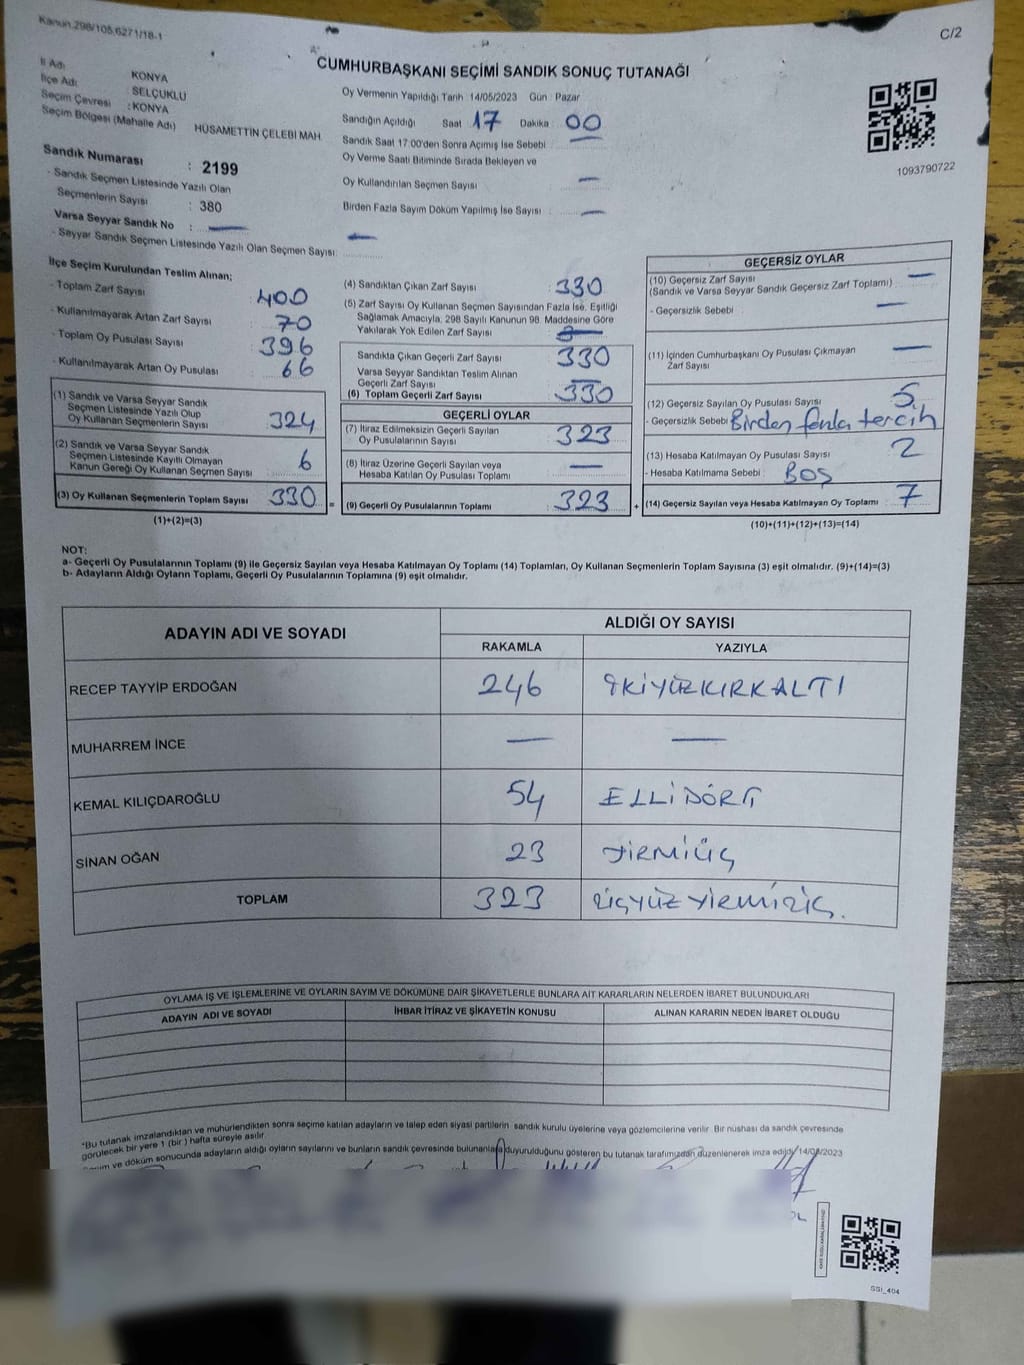 Kanun.298/105,6271/18-1
C/2
CUMHURBAŞKANI SEÇİMİ SANDIK SONUÇ TUTANAĞI
İl Adı : KONYA
İlçe Adı : SELÇUKLU
Seçim Çevresi : KONYA
Seçim Bölgesi (Mahalle Adı) HÜSAMETTİN ÇELEBİ MAH.
Sandık Numarası : 2199
- Sandık Seçmen Listesinde Yazılı Olan
Seçmenlerin Sayısı : 380
Varsa Seyyar Sandık No : —
- Seyyar Sandık Seçmen Listesinde Yazılı Olan Seçmen Sayısı: —
Oy Vermenin Yapıldığı Tarih 14/05/2023 Gün : Pazar
Sandığın Açıldığı Saat : 17 Dakika : 00
Sandık Saat 17:00'den Sonra Açımış İse Sebebi : —
Oy Verme Saati Bitiminde Sırada Bekleyen ve
Oy Kullandırılan Seçmen Sayısı : —
Birden Fazla Sayım Döküm Yapılmış İse Sayısı : —
1093790722
İlçe Seçim Kurulundan Teslim Alınan;
- Toplam Zarf Sayısı : 400
- Kullanılmayarak Artan Zarf Sayısı : 70
- Toplam Oy Pusulası Sayısı : 396
- Kullanılmayarak Artan Oy Pusulası : 66
(1) Sandık ve Varsa Seyyar Sandık
Seçmen Listesinde Yazılı Olup
Oy Kullanan Seçmenlerin Sayısı : 324
(2) Sandık ve Varsa Seyyar Sandık
Seçmen Listesinde Kayıtlı Olmayan
Kanun Gereği Oy Kullanan Seçmen Sayısı : 6
(3) Oy Kullanan Seçmenlerin Toplam Sayısı : 330 =
(1)+(2)=(3)
(4) Sandıktan Çıkan Zarf Sayısı : 330
(5) Zarf Sayısı Oy Kullanan Seçmen Sayısından Fazla İse, Eşitliği
Sağlamak Amacıyla, 298 Sayılı Kanunun 98. Maddesine Göre
Yakılarak Yok Edilen Zarf Sayısı :
Sandıkta Çıkan Geçerli Zarf Sayısı : 330
Varsa Seyyar Sandıktan Teslim Alınan
Geçerli Zarf Sayısı : —
(6) Toplam Geçerli Zarf Sayısı : 330
GEÇERLİ OYLAR
(7) İtiraz Edilmeksizin Geçerli Sayılan
Oy Pusulalarının Sayısı : 323
(8) İtiraz Üzerine Geçerli Sayılan veya
Hesaba Katılan Oy Pusulası Toplamı : —
(9) Geçerli Oy Pusulalarının Toplamı : 323 +
GEÇERSİZ OYLAR
(10) Geçersiz Zarf Sayısı : —
(Sandık ve Varsa Seyyar Sandık Geçersiz Zarf Toplamı)
- Geçersizlik Sebebi : —
(11) İçinden Cumhurbaşkanı Oy Pusulası Çıkmayan
Zarf Sayısı : —
(12) Geçersiz Sayılan Oy Pusulası Sayısı : 5
- Geçersizlik Sebebi Birden fazla tercih
(13) Hesaba Katılmayan Oy Pusulası Sayısı : 2
- Hesaba Katılmama Sebebi : BOŞ
(14) Geçersiz Sayılan veya Hesaba Katılmayan Oy Toplamı : 7
(10)+(11)+(12)+(13)=(14)
NOT:
a- Geçerli Oy Pusulalarının Toplamı (9) ile Geçersiz Sayılan veya Hesaba Katılmayan Oy Toplamı (14) Toplamları, Oy Kullanan Seçmenlerin Toplam Sayısına (3) eşit olmalıdır. (9)+(14)=(3)
b- Adayların Aldığı Oyların Toplamı, Geçerli Oy Pusulalarının Toplamına (9) eşit olmalıdır.
ADAYIN ADI VE SOYADI ALDIĞI OY SAYISI
RAKAMLA YAZIYLA
RECEP TAYYİP ERDOĞAN 246 İKİYÜZKIRKALTI
MUHARREM İNCE — —
KEMAL KILIÇDAROĞLU 54 ELLİDÖRT
SİNAN OĞAN 23 YİRMİÜÇ
TOPLAM 323 ÜÇYÜZYİRMİÜÇ.
OYLAMA İŞ VE İŞLEMLERİNE VE OYLARIN SAYIM VE DÖKÜMÜNE DAİR ŞİKAYETLERLE BUNLARA AİT KARARLARIN NELERDEN İBARET BULUNDUKLARI
ADAYIN ADI VE SOYADI İHBAR İTİRAZ VE ŞİKAYETİN KONUSU ALINAN KARARIN NEDEN İBARET OLDUĞU
*Bu tutanak imzalandıktan ve mühürlendikten sonra seçime katılan adayların ve talep eden siyasi partilerin sandık kurulu üyelerine veya gözlemcilerine verilir. Bir nüshası da sandık çevresinde
görülecek bir yere 1 (bir) hafta süreyle asılır.
ve döküm sonucunda adayların aldığı oyların sayılarını ve bunların sandık çevresinde bulunanlara duyurulduğunu gösteren bu tutanak tarafımızdan düzenlenerek imza edildi. 14/05/2023
SSI_404